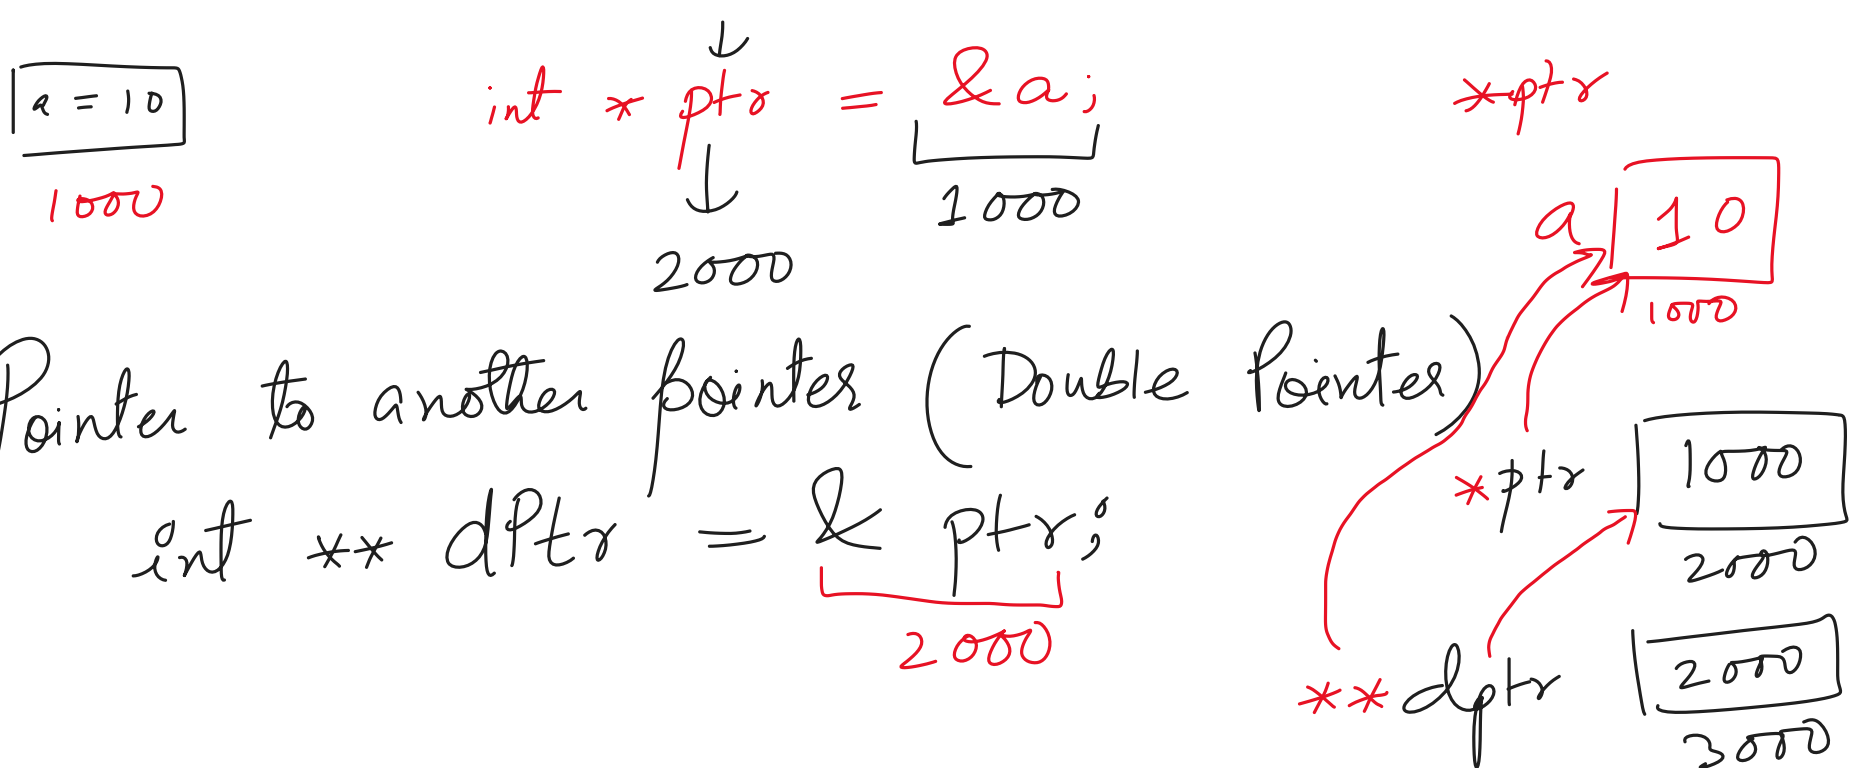 a = 10
1000
int * ptr = &a;
1000
2000
*ptr
a 10
1000
Pointer to another pointer (Double Pointer)
int ** dPtr = & ptr;
2000
*ptr 1000
2000
**dptr 2000
3000